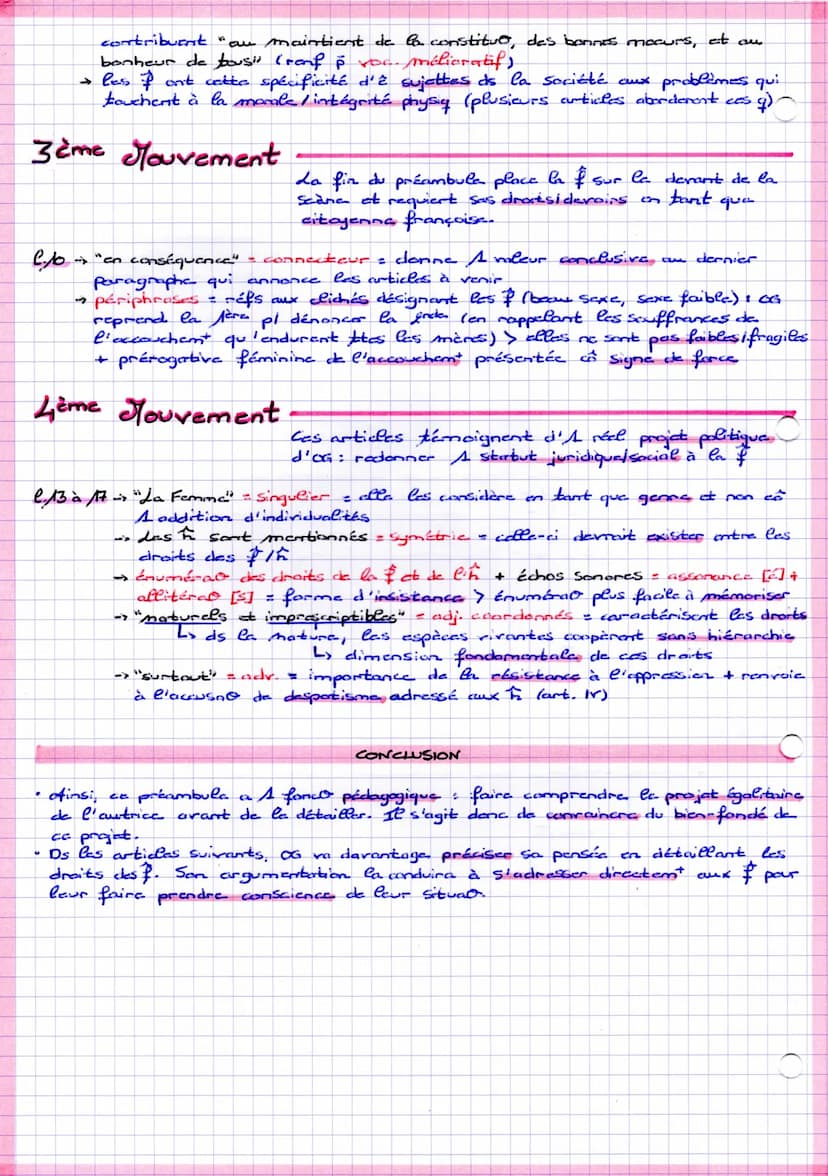 contribuent "au maintient de la constitu⁰, des bonnes mœurs, et au
bonheur de tous" (renf p̄ voc. mélioratif)
→ les f̂ ont cette spécificité d'ê sujettes ds la société aux problèmes qui
touchent à la morale/intégrité physq (plusieurs articles aborderont ces q)
3ème Mouvement
La fin du préambule place la f̂ sur le devant de la
scène et requiert ses droits/devoirs en tant que
citoyenne françoise.
l.10 → "en conséquence" = connecteur = donne 1 valeur conclusive au dernier
paragraphe qui annonce les articles à venir
→ périphrases = réfs aux clichés désignant les f̂ (beau sexe, sexe faible) : OG
reprend la 1ère p/ dénoncer la 2nde (en rappelant les souffrances de
l'accouchemt qu'endurent ttes les mères) > elles ne sont pas faibles/fragiles
+ prérogative féminine de l'accouchemt présentée cô signe de force
4ème Mouvement
Ces articles témoignent d'1 réel projet politique
d'OG : redonner 1 statut juridique/social à la f̂
l.13 à 17 → "La Femme" = singulier = elle les considère en tant que genre et non cô
1 addition d'individualités
→ Les ĥ sont mentionnés = symétrie = celle-ci devrait exister entre les
droits des f̂/ĥ
→ énumérao des droits de la f̂ et de l'ĥ + échos sonores = assonance [é] +
allitérao [s] = forme d'insistance > énumérao plus facile à mémoriser
→ "naturels et imprescriptibles" = adj. coordonnés = caractérisent les droits
↳ ds la nature, les espèces vivantes coopèrent sans hiérarchie
↳ dimension fondamentale de ces droits
→ "surtout" = adv. = importance de la résistance à l'oppression + renvoie
à l'accusao de despotisme adressé aux ĥ (art. IV)
CONCLUSION
• Ainsi, ce préambule a 1 foncо pédagogique : faire comprendre le projet égalitaire
de l'autrice avant de le détailler. Il s'agit donc de convaincre du bien-fondé de
ce projet.
• Ds les articles suivants, OG va davantage préciser sa pensée en détaillant les
droits des f̂. Son argumentation la conduira à s'adresser directemt aux f̂ pour
leur faire prendre conscience de leur situao.